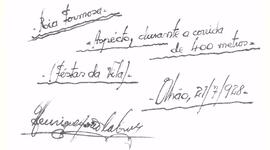 Ria Formosa
Aspecto, durante a corrida
de 400 metros
(Festas da Vila)
Olhão, 21/7/928
Henrique